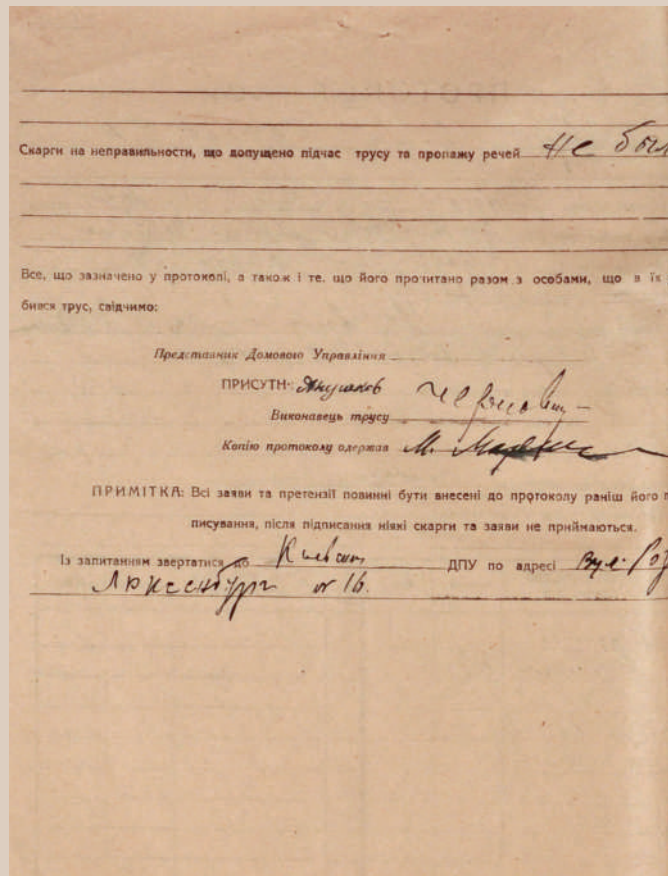 Скарги на неправильности, що допущено підчас трусу та пропажу речей не был
Все, що зазначено у протоколі, а також і те, що його прочитано разом з особами, що в їх
бився трус, свідчимо:
Представник Домового Управління
ПРИСУТН:
Виконавець трусу
Копію протоколу одержав М.
ПРИМІТКА: Всі заяви та претензії повинні бути внесені до протоколу раніш його п
писування, після підписання ніякі скарги та заяви не приймаються.
Із запитанням звертатися до ДПУ по адресі вул. Роз
Люксенбург № 16.